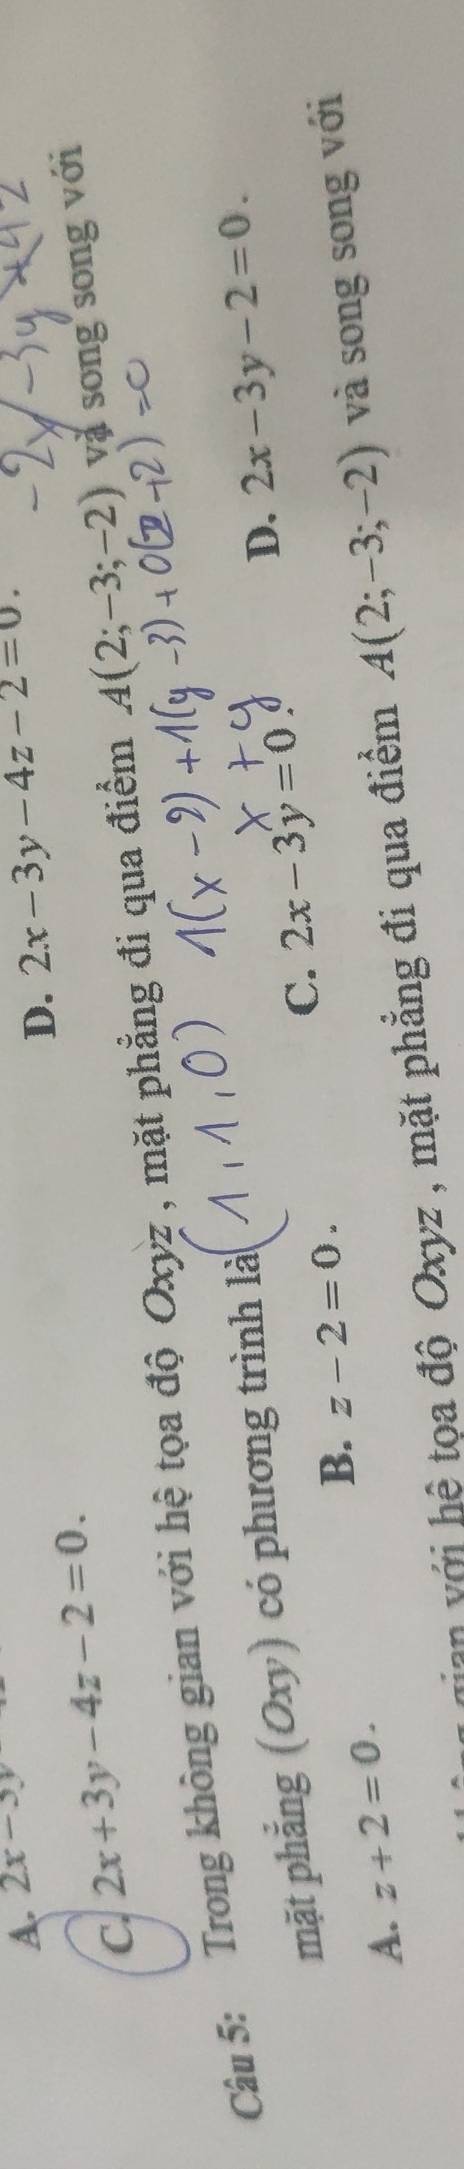 A. 2x-3y
D. 2x-3y-4z-2=0.
-2x-3y+42
C. 2x+3y-4z-2=0.
Câu 5: Trong không gian với hệ tọa độ Oxyz, mặt phẳng đi qua điểm A(2;-3;-2) và song song với
(1,1,0) 1(x-2)+1(y-3)+0(z+2)=0
mặt phẳng (Oxy) có phương trình là
x+y
A. z+2=0. B. z-2=0. C. 2x-3y=0. D. 2x-3y-2=0.
với hệ tọa độ Oxyz, mặt phẳng đi qua điểm A(2;-3;-2) và song song với